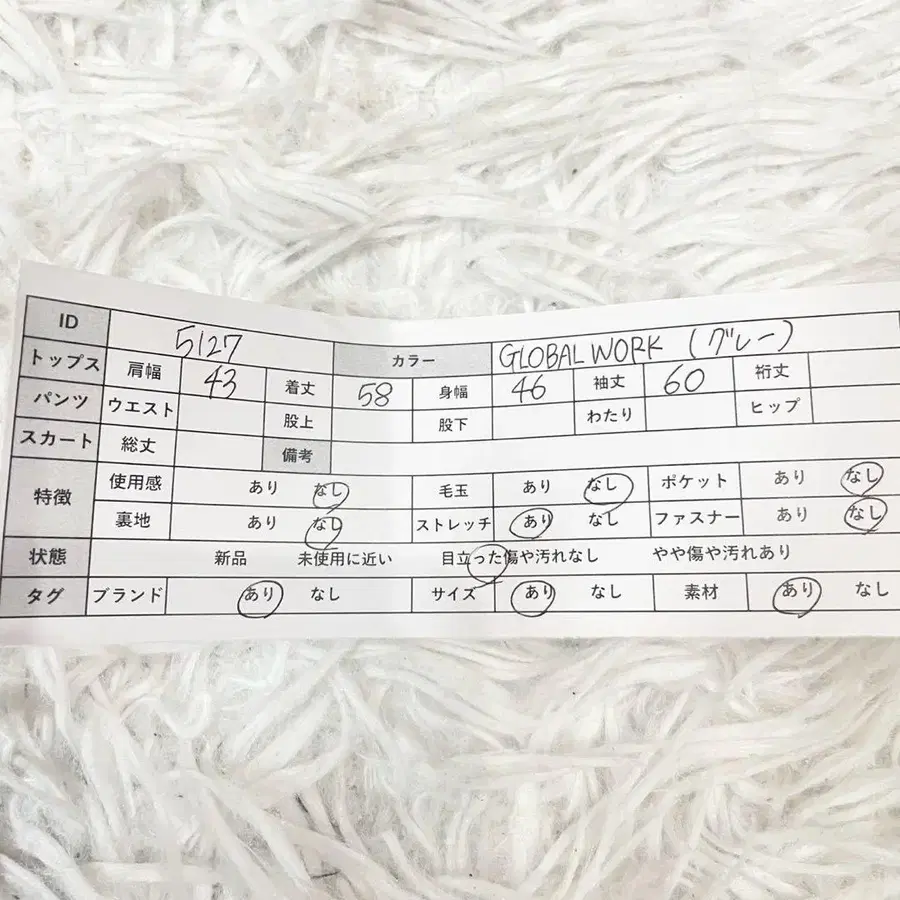 ID 5127 カラー GLOBAL WORK (グレー)
トップス 肩幅 43 着丈 58 身幅 46 袖丈 60 裄丈
パンツ ウエスト 股上 股下 わたり ヒップ
スカート 総丈 備考
特徴 使用感 あり なし 毛玉 あり なし ポケット あり なし
裏地 あり なし ストレッチ あり なし ファスナー あり なし
状態 新品 未使用に近い 目立った傷や汚れなし やや傷や汚れあり
タグ ブランド あり なし サイズ あり なし 素材 あり なし